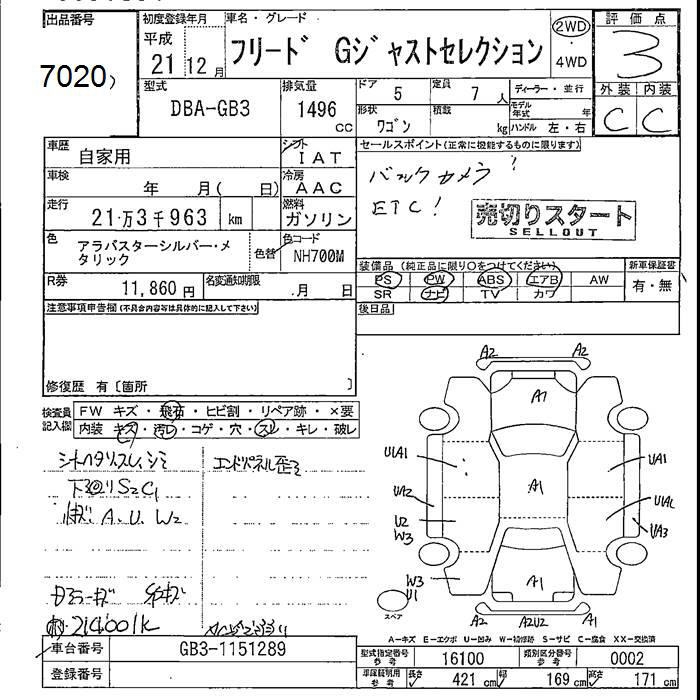 出品番号
7020
初度登録年月
平成
21 12月
車名・グレード
フリード Gジャストセレクション
2WD
・
4WD
評価点
3
外装 内装
C C
型式
DBA-GB3
排気量
1496
CC
ドア 5
定員 7 人
形状 ワゴン
積載 kg
ディーラー・並行
モデル年式 年
ハンドル 左・右
車歴 自家用
シフト IAT
車検 年 月( 日)
冷房 AAC
走行 21万3千963 km
燃料 ガソリン
色 アラバスターシルバー・メタリック
色替
色コード NH700M
R券 11,860円
名変通知期限 . 月 日
セールスポイント(正常に機能するものに限ります)
バックカメラ!
ETC!
売切りスタート
SELLOUT
装備品 (純正品に限り〇をつけてください)
新車保証書
PS PW ABS エアB AW
SR ナビ TV カワ
有・無
後日品
注意事項申告欄(不具合内容等は具体的に記入して下さい)
修復歴 有〔箇所 〕
検査員記入欄
FW キズ・飛石・ヒビ割・リペア跡・×要
内装 キズ・汚レ・コゲ・穴・スレ・キレ・破レ
シートヘタリ、スレ、シミ
エンドパネル歪ミ
下廻りS2C1
A.U.W2
214001K
A2 A2
A1
U1A1
UA1
UA2
A1
U1A1
U2
W3
UA3
W3
U1
A1
スペア
A2 A2U2 A1
A―キズ E―エクボ U―凹み W―補修跡 S―サビ C―腐食 XX―交換済
車台番号 GB3-1151289
登録番号
型式指定番号 参考 16100
類別区分番号 参考 0002
車庫証明用 参考
長さ 421 cm
幅 169 cm
高さ 171 cm